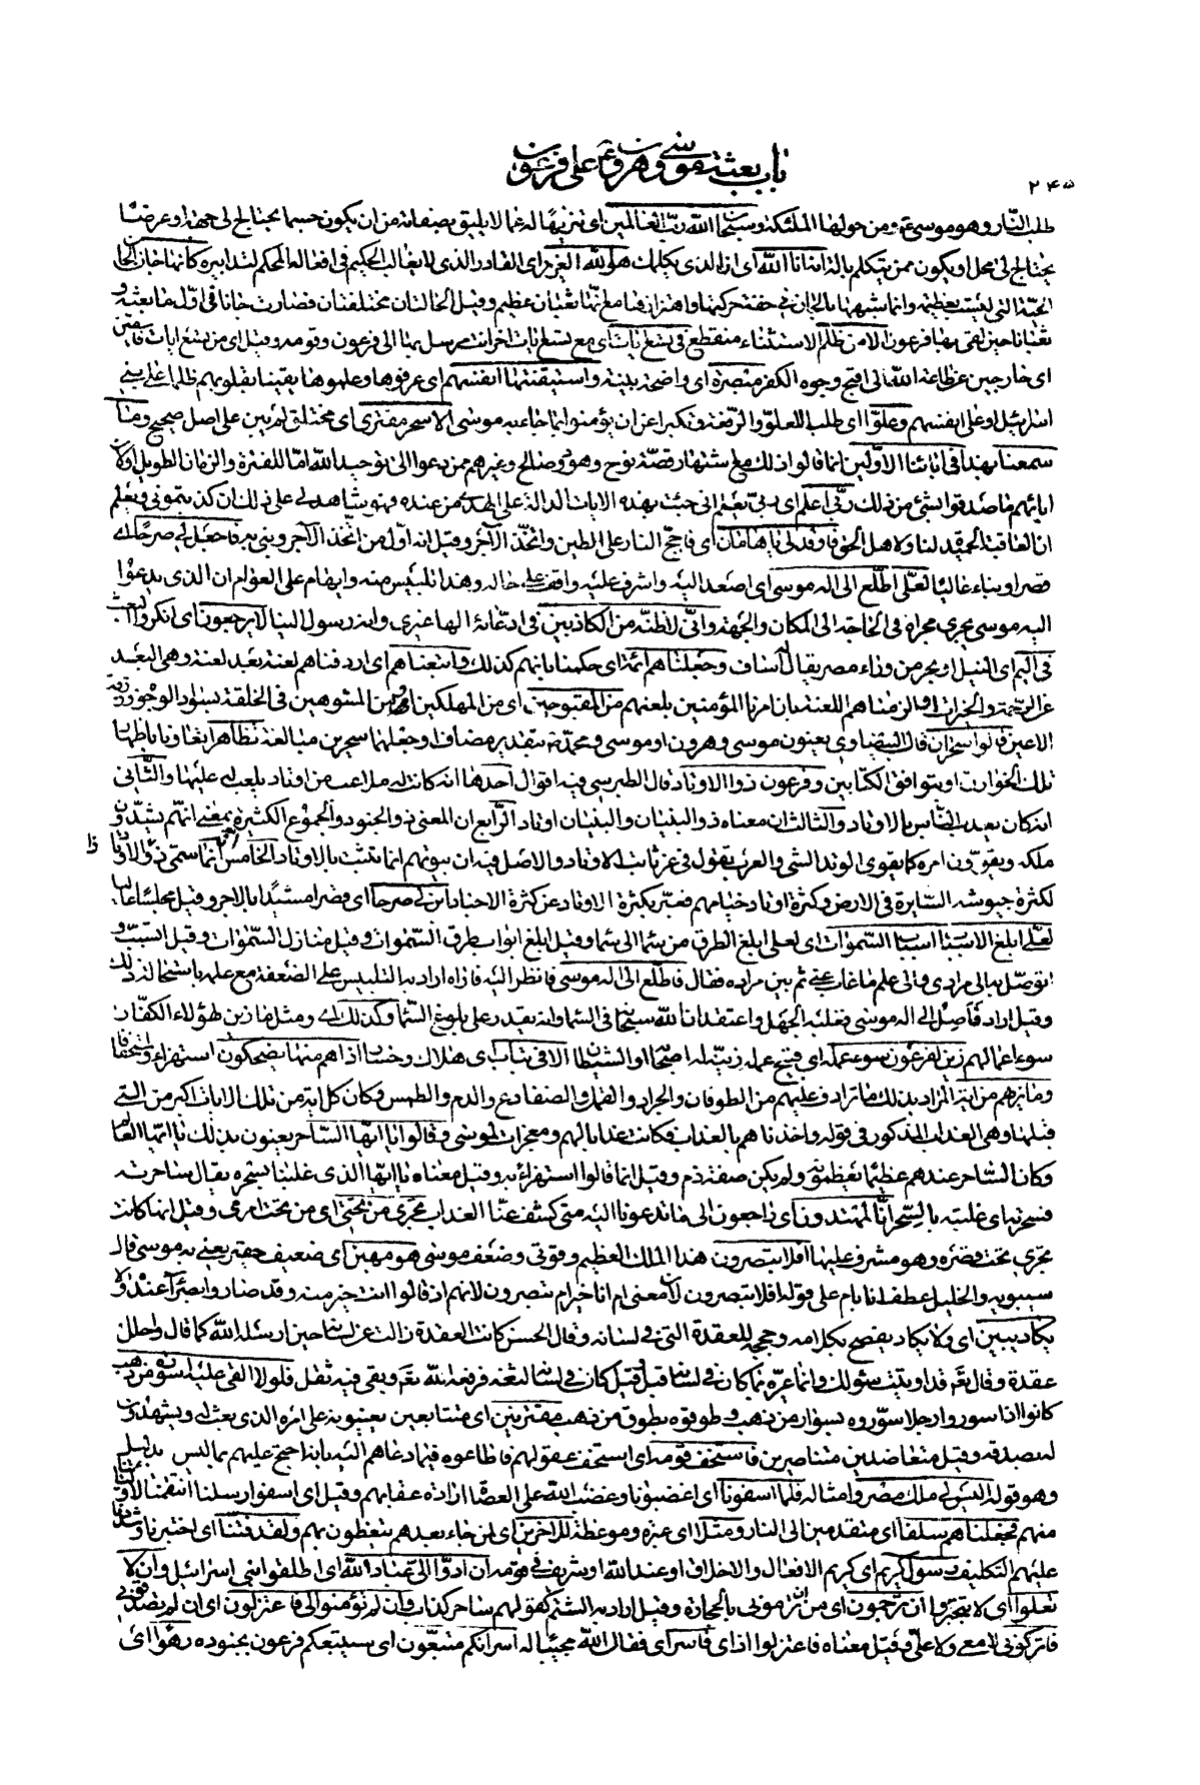 باب بعثة موسى وهرون ع على فرعون
٢٤٥
طلب النّار وهو موسى ع ومن حولها الملئكة وسبحان الله ربّ العالمين اى تنزيها له عما لا يليق بصفاته من ان يكون جسما يحتاج الى جهة او عرضا
يحتاج الى محل او يكون ممن يتكلم بالة انه انا الله اى ان الذى يكلمك هو الله العزيز اى القادر الذى لا يغالب الحكيم فى افعاله المحكم لتدابيره كأنها جان الجان
الحيّة التى ليست بعظيمة وانما شبهها بالجان فى خفة حركتها واهتزازها مع انّها ثعبان عظيم وقيل الحالتان مختلفتان فصارت جانا فى اوّل ما بعثه و
ثعبانا حين لقى بها فرعون الا من ظلم الاستثناء منقطع فى تسع ايات اى مع تسع ايات اخر انت مرسل بها الى فرعون وقومه وقيل اى من تسع ايات فاسقين
اى خارجين عن طاعة الله الى اقبح وجوه الكفر مبصرة اى واضحة بينة واستيقنتها انفسهم اى عرفوها وعلموها يقينا بقلوبهم ظلما على بنى
اسرائيل او على انفسهم وعلوّا اى طلبا للعلوّ والرّفعة وتكبرا عن ان يؤمنوا بما جاء به موسى الا سحر مفترى اى مختلق لم يبن على اصل صحيح وما
سمعنا بهذا فى ابائنا الاوّلين انما قالوا ذلك مع اشتهار قصّة نوح وهود وصالح وغيرهم ممن دعوا الى توحيد الله امّا للفترة والزمان الطويل اولان
ابائهم ما صدقوا بشئ من ذلك ربّى اعلم اى ربّى يعلم انى جئت بهذه الايات الدالة على الهدى من عنده فهو شاهد لى على ذلك ان كذبتمونى ويعلم
ان العاقبة الحميدة لنا ولاهل الحق فاوقد لى يا هامان اى فاجّج النار على الطين واتخذ الآجر وقيل انه اوّل من اتّخذ الآجر وبنى به فاجعل لى صرحا اى
قصرا وبناء عاليا لعلّى اطّلع الى اله موسى اى اصعد اليه واشرف عليه واقف على حاله وهذا تلبيس منه وايهام على العوام ان الذى يدعوا
اليه موسى يجرى مجراه فى الحاجة الى المكان والجهة وانّى لاظنّه من الكاذبين فى ادّعائه الها غيرى وانه رسوله الينا لا يرجعون اى انكروا البعث
فى اليم اى النيل او بحر من وراء مصر يقال له اساف وجعلناهم ائمة اى حكمنا بانهم كذلك واتبعناهم اى اردفناهم لعنة بعد لعنة وهى البعد
عن الرحمة والخيرات او الزمناهم اللعنة بان امرنا المؤمنين بلعنهم من المقبوحين اى من المهلكين او من المشوهين فى الخلقة بسواد الوجوه وزرقة
الاعين قالوا سحران قال البيضاوى يعنون موسى وهرون او موسى ومحمّد ص بتقدير مضاف او جعلهما سحرين مبالغة تظاهرا تعاونا باظهار
تلك الخوارق او بتوافق الكتابين وفرعون ذو الاوتاد قال الطبرسى فيه اقوال احدها انه كانت له ملاعب من اوتاد يلعب له عليها والثّانى
انه كان يعذب النّاس بالاوتاد والثالث ان معناه ذو البنيان والبنيان اوتاد الرّابع ان المعنى ذو الجنود والجموع الكثيرة بمعنى انهم يشدّدون
ملكه ويقوّون امره كما يقوى الوتد الشئ والعرب يقول فى عز ثابت الاوتاد والاصل فيه ان بيوتهم انما تثبت بالاوتاد الخامس انما سمّى ذو الاوتاد
لكثرة جيوشه السّايرة فى الارض وكثرة اوتاد خيامهم فعبّر بكثرة الاوتاد عن كثرة الاجناد ابن لى صرحا اى قصرا مشيّدا بالاجر وقيل مجلسا عاليا
لعلّى ابلغ الاسباب اسباب السّموات اى لعلى ابلغ الطرق من سماء الى سماء وقيل ابلغ ابواب طرق السّموات وقيل منازل السّموات وقيل اتسبّب و
اتوصّل به الى مرادى والى علم ما غاب عنّى ثم بين مراده فقال فاطّلع الى اله موسى فانظر اليه فاراه اراد به التلبيس على الضعفة مع علمه باستحالة ذلك
وقيل اراد فاصل الى اله موسى فغلبه الجهل واعتقد ان الله سبحانه فى السّماء وانه يقدر على بلوغ السّماء وكذلك اى ومثل ما زين لهؤلاء الكفّار
سوء اعمالهم زين لفرعون سوء عمله اى قبيح عمله زيّن له اصحابه او الشيطان الا فى تباب اى هلاك وخسار اذا هم منها يضحكون استهزاء واستخفافا
وما نريهم من اية المراد بذلك ما ترادف عليهم من الطوفان والجراد والقمل والضفادع والدم والطمس وكان كل اية من تلك الايات اكبر من التى
قبلها وهى العذاب المذكور فى قوله واخذناهم بالعذاب فكانت عذابا لهم ومعجزات لموسى وقالوا يا ايّها السّاحر يعنون بذلك يا ايّها العالم
وكان السّاحر عندهم عظيما يعظمونه ولم يكن صفة ذم وقيل انما قالوا استهزاء به وقيل معناه يا ايها الذى غلبنا بسحره يقال ساحرته
فسحرته اى غلبته بالسّحر انّنا لمهتدون اى راجعون الى ما تدعونا اليه متى كشف عنّا العذاب تجرى من تحتى اى من تحت امرى وقيل انها كانت
تجرى تحت قصره وهو مشرف عليها افلا تبصرون هذا الملك العظيم وقوتى وضعف موسى هو مهين اى ضعيف حقير يعنى به موسى قال
سيبويه والخليل عطف انا بام على قوله افلا تبصرون لان معنى ام انا خير ام تبصرون لانهم اذ قالوا انت خير منه وقد صاروا بصرآء عنده ولا
يكاد يبين اى ولا يكاد يفصح بكلامه وحججه للعقدة التى فى لسانه وقال الحسن كانت العقدة زالت عن لسانه حين ارسله الله كما قال واحلل
عقدة وقال تعالى قد اوتيت سؤلك وانما عيره بما كان فى لسانه قبل وقيل كان فى لسانه لثغة فرفعه الله تعالى وبقى فيه ثقل فلولا القى عليه اسورة من ذهب
كانوا اذا سوّدوا رجلا سوّروه بسوار من ذهب وطوقوه بطوق من ذهب مقترنين اى متتابعين يعينونه على امره الذى بعث له ويشهدون
له بصدقه وقيل متعاضدين متناصرين فاستخف قومه اى استخف عقولهم فاطاعوه فيما دعاهم اليه بانه احتج عليهم بما ليس بدليل
وهو قوله اليس لى ملك مصر وامثاله فلما اسفونا اى اغضبونا وغضب الله على العصاة ارادة عقابهم وقيل اى اسفوا رسلنا انتقمنا لاوليائنا
منهم فجعلناهم سلفا اى متقدمين الى النار ومثلا اى عبرة وموعظة للآخرين اى لمن جاء بعدهم يتعظون بهم ولقد فتنّا اى اختبرنا وشددنا
عليهم التكليف رسول كريم اى كريم الافعال والاخلاق او عند الله او شريف فى قومه ان ادّوا الىّ عباد الله اى اطلقوا بنى اسرائيل وان لا
تعلوا اى لا تتجبروا ان ترجمون اى من ان ترمونى بالحجارة وقيل اراد به الشتم كقولهم ساحر كذاب وان لم تؤمنوا لى فاعتزلون اى ان لم تصدقونى
فاتركونى لا معى ولا علىّ وقيل معناه فاعتزلوا اذاى فاسر اى فقال الله مجيبا له اسر انكم متبعون اى سيتبعكم فرعون بجنوده رهوا اى